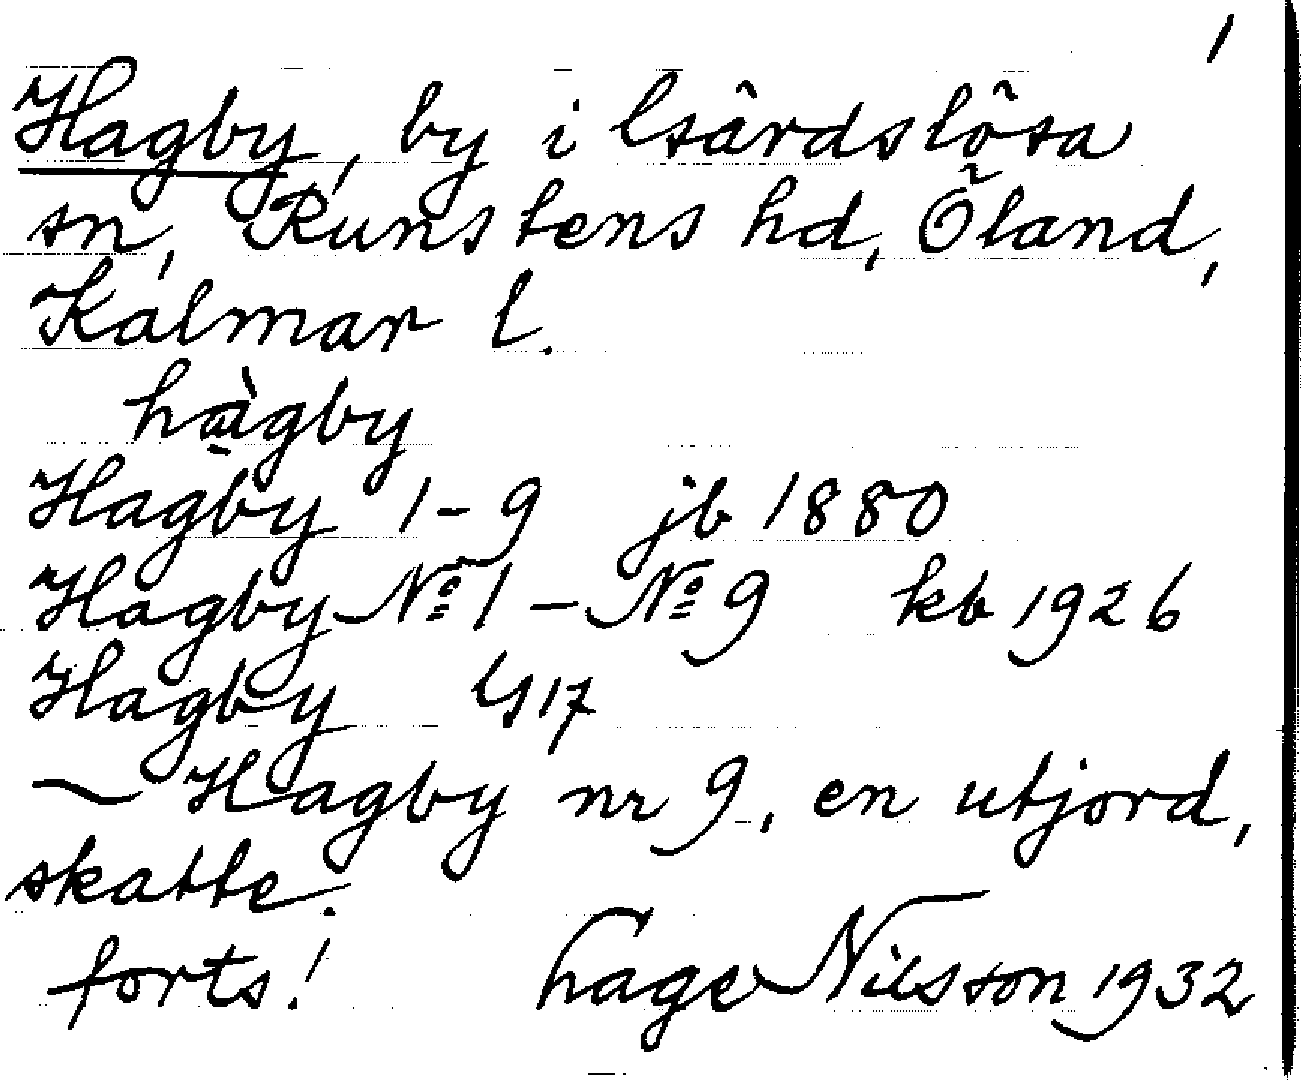 1
Hagby, by i Gsärdslösa
sn, Runstens hd, Öland,
Kalmar l.
hàgby
Hagby 1-9 jb 1880
Hagby No 1 - No 9 kb 1926
Hagby GS 17
~ Hagby nr 9, en utjord,
skatte.
forts! Hage Nilsson 1932